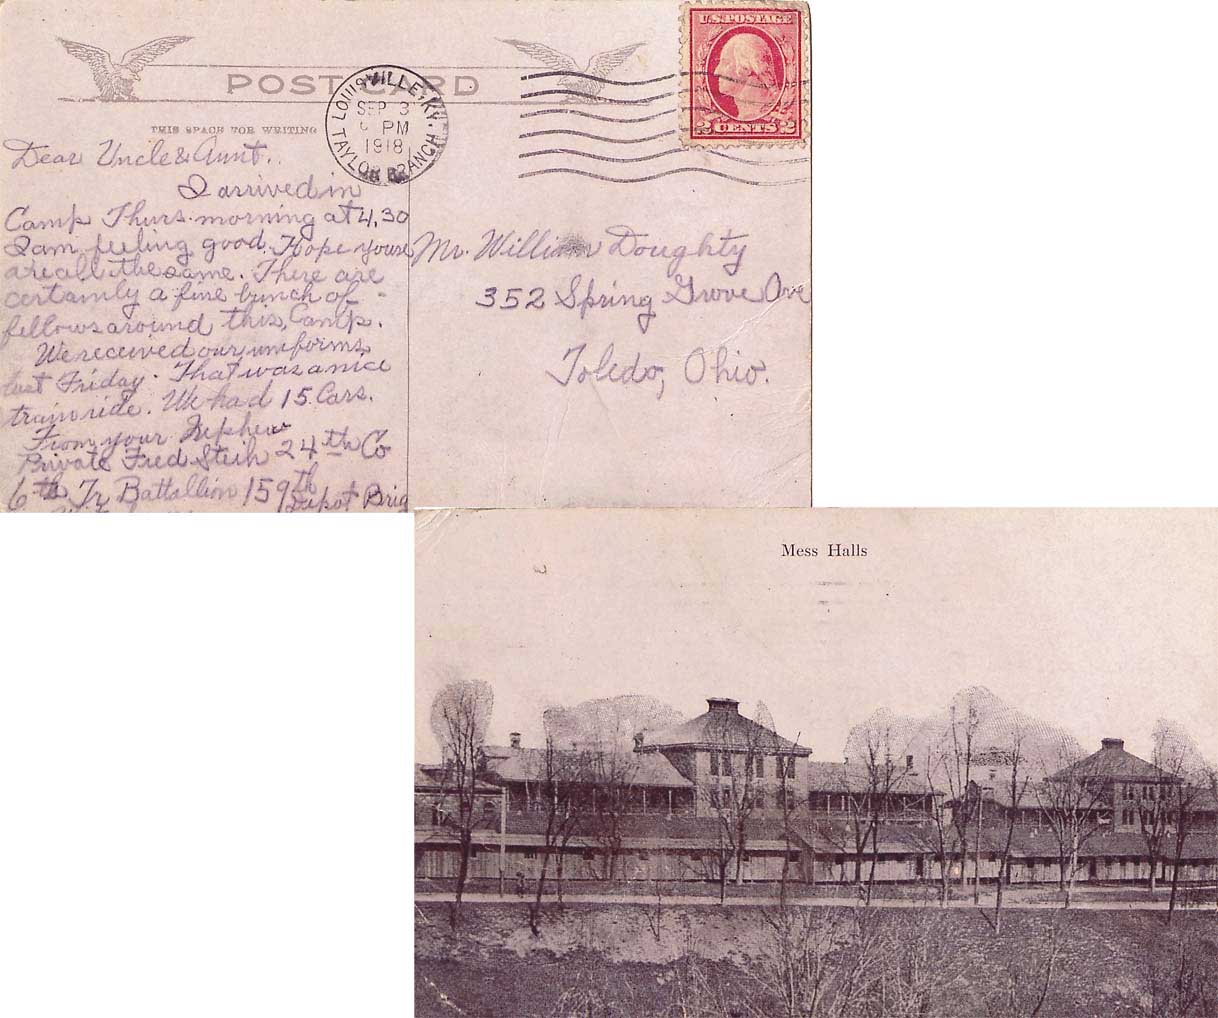 POST CARD
THIS SPACE FOR WRITING
LOUISVILLE, KY.
SEP 3
PM
1918
TAYLOR BRANCH
U.S. POSTAGE
2 CENTS 2
Dear Uncle & Aunt.
I arrived in
Camp Thurs. morning at 4,30
I am feeling good. Hope youse
are all the same. There are
certainly a fine bunch of
fellows around this, Camp.
We received our uniforms
last Friday. That was a nice
train ride. We had 15 Cars.
From your Nephew
Private Fred Steih 24th Co
6th Tr Battallion 159th
Depot Brig
Mr. William Doughty
352 Spring Grove Ave
Toledo, Ohio.
Mess Halls